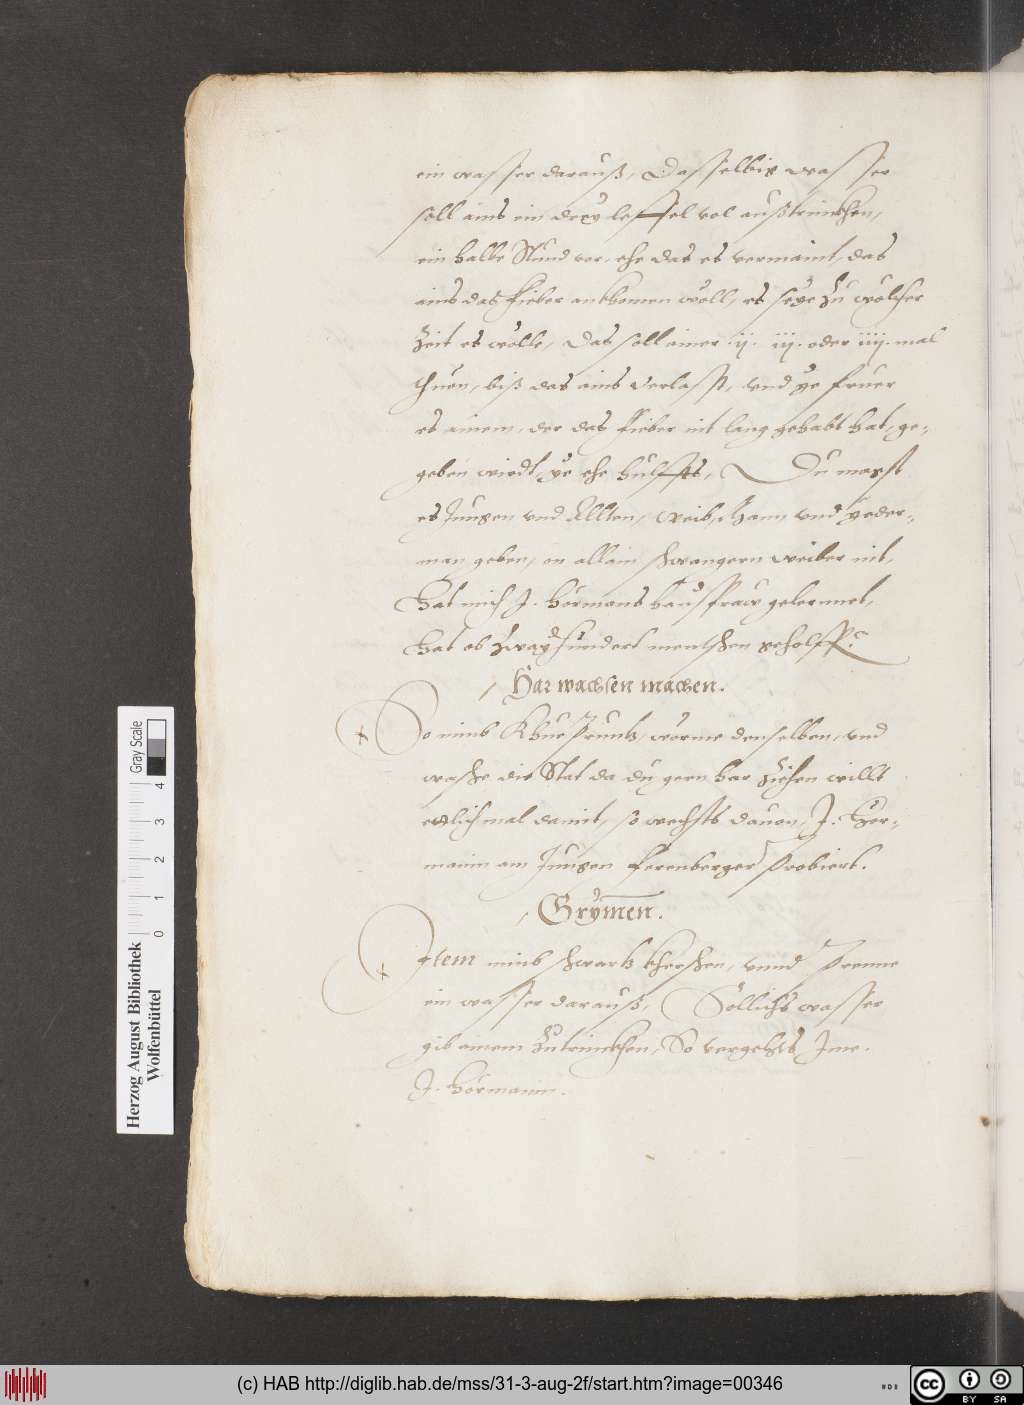 ein wasser darauß, Dasselbig wasser
soll ains ein drey leffel vol außtrinckhen,
ein halbe Stund vor, ehe das es vermaint, das
ains das fieber ankhomen wöll, es seye zu wölcher
Zeit es wölle, Das soll ainer .ij. iij. oder iiij. mal
thuen, biß das ains verlasst, vnd ye fruer
es ainem, der das fieber nit lang gehabt hat, ge-
geben wirdt, ye ehe hulffts, Du magst
es Jungen vnd Allten, Weib, Mann vnd yeder-
man geben, on allain schwangern weiber nit,
Hat mich J. Hörmans haussfraw gelernnet,
Hat ob zwayhundert menschen geholffen
Har wachsen machen.
So nimb Khue pruntz, wörme denselben, vnd
wasche die Stat da du gern har ziehen willt
etlich mal damit, so wechsts dauon, J. Hör-
manin am Jungen Ferenberger Probiert.
Grymen.
Item nimb schwartz kherschen, vnnd Prenne
ein wasser darauß, Söllichs wasser
gib ainem zutrinckhen, So vergehts Jme.
J. Hörmanin.
Herzog August Bibliothek
Wolfenbüttel
Gray Scale
0 1 2 3 4
(c) HAB http://diglib.hab.de/mss/31-3-aug-2f/start.htm?image=00346
cc BY SA